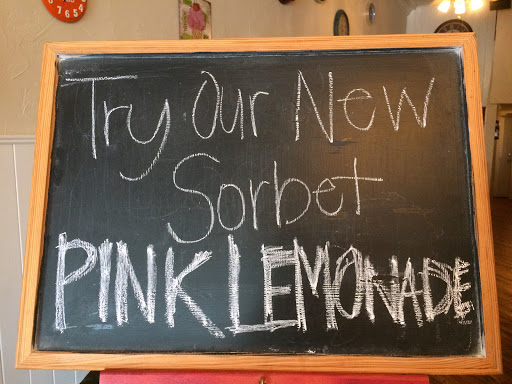 Try Our New
Sorbet
PINK LEMONADE